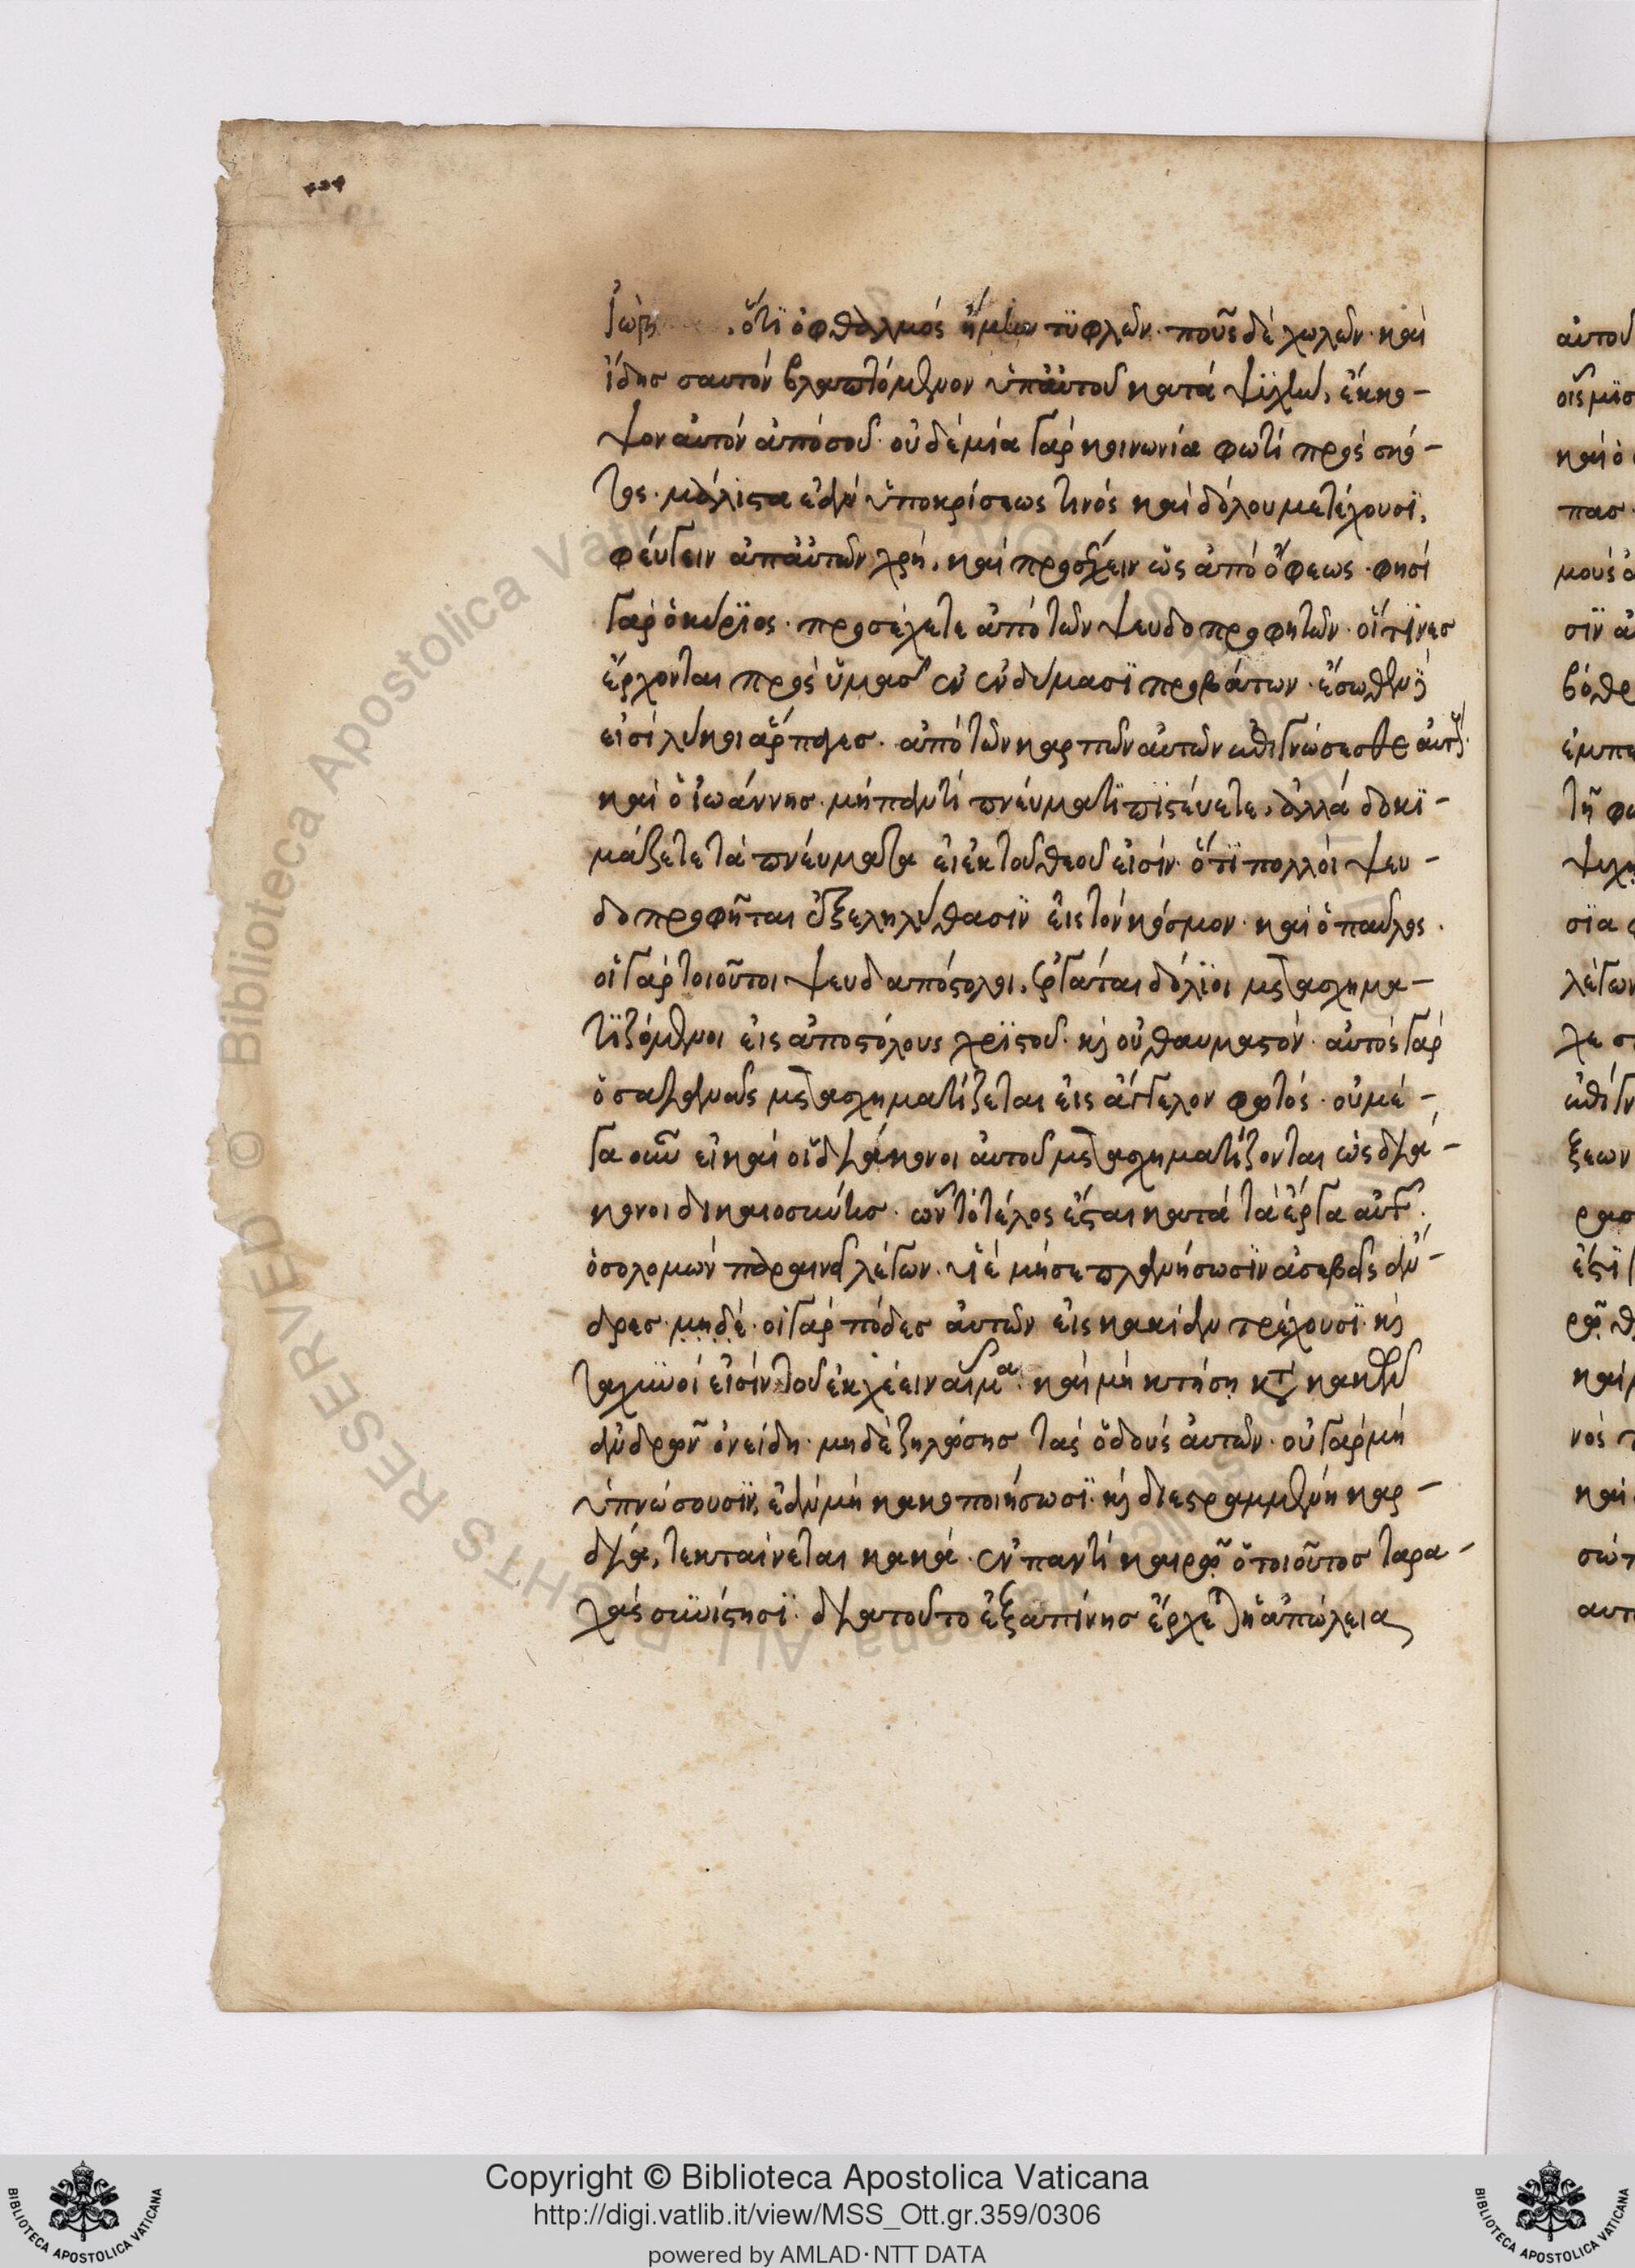 ὅτι ὀφθαλμός ἤμιυν τϋφλῶν· ποῦς δέ χωλῶν· καί
ἴδης σαυτόν βλαπτόμενον ὑπ' αὐτοῦ κατά ψϋχήν, ἔκκο-
ψον αὐτόν ἀπό σοῦ· οὐδέ μία γάρ κοινωνία φωτί πρός σκό-
τος· μάλιστα ἐάν ὑποκρίσεως τινός καί δόλου μετέχουσϊ,
φεύγειν ἀπ' αὐτῶν χρή, καί προσέχειν ὡς ἀπό ὄφεως· φησί
γάρ ὁ κύρϊος· προσέχετε ἀπό τῶν ψευδοπροφητῶν· οἵτϊνες
ἔρχονται πρός ὑμᾶς ἐν ἐνδύμασϊ προβάτων· ἔσωθεν δέ
εἰσί λύκοι ἅρπαγες· ἀπό τῶν καρπῶν αὐτῶν ἐπιγνώσεσθε αὐτούς·
καί ὁ ἰωάννης· μή παντί πνεύματϊ πϊστεύετε, ἀλλά δοκϊ-
μάζετε τά πνεύματα εἰ ἐκ τοῦ θεοῦ εἰσίν· ὅτϊ πολλοί ψευ-
δοπροφῆται ἐξεληλύθασϊν εἰς τόν κόσμον· καί ὁ παῦλος·
οἱ γάρ τοιοῦτοι ψευδαπόστολοι, ἐργάται δόλϊοι μετασχημα-
τϊζόμενοι εἰς ἀποστόλους χρϊστοῦ· καί οὐ θαυμαστόν· αὐτός γάρ
ὁ σατανᾶς μετασχηματίζεται εἰς ἄγγελον φωτός· οὐ μέ-
γα οὖν εἰ καί οἱ διάκονοι αὐτοῦ μετασχηματίζονται ὡς διά-
κονοι δικαιοσύνης· ὧν τό τέλος ἔσται κατά τά ἔργα αὐτῶν·
ὁ σολομών παραινεῖ λέγων· υἱέ μή σε πλανήσωσϊν ἀσεβεῖς ἄν-
δρες· μηδέ· οἱ γάρ πόδες αὐτῶν εἰς κακίαν τρέχουσϊ· καί
ταχϋνοί εἰσίν τοῦ ἐκχέειν αἷμα· καί μή κτήσῃ κακῶν
ἀνδρῶν ὀνείδη· μηδέ ζηλώσης τάς ὁδούς αὐτῶν· οὐ γάρ μή
ὑπνώσουσϊν, ἐάν μή κακοποιήσωσϊ· καί διεστραμμένη καρ-
δία, τεκταίνεται κακά· ἐν παντί καιρῷ ὁ τοιοῦτος ταρα-
χάς συνίστησϊ· διατοῦτο ἐξαπίνης ἔρχεται ἡ ἀπώλεια
Copyright © Biblioteca Apostolica Vaticana
http://digi.vatlib.it/view/MSS_Ott.gr.359/0306
powered by AMLAD·NTT DATA